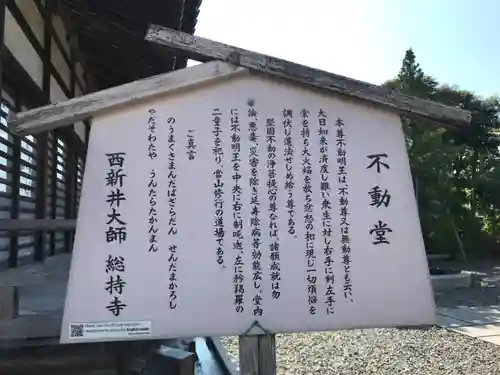 不動堂
本尊不動明王は、不動尊又は無動尊とも云い、
大日如来が済度し難い衆生に対し右手に剣左手に
索を持ち大火焔を放ち忿怒の相に現じ一切煩悩を
調伏し道法せしめ給う尊である。
堅固不動の浄菩提心の尊なれば、諸願成就は勿
論、悪毒、災害を除き延寿除病等効能広し。堂内
には不動明王を中央に右に制吒迦、左に矜羯羅の
二童子を祀り、当山修行の道場である。
ご真言
のうまくさまんだばさらだん せんだまかろし
ゃだそわたや うんたらたかんまん
西新井大師 総持寺